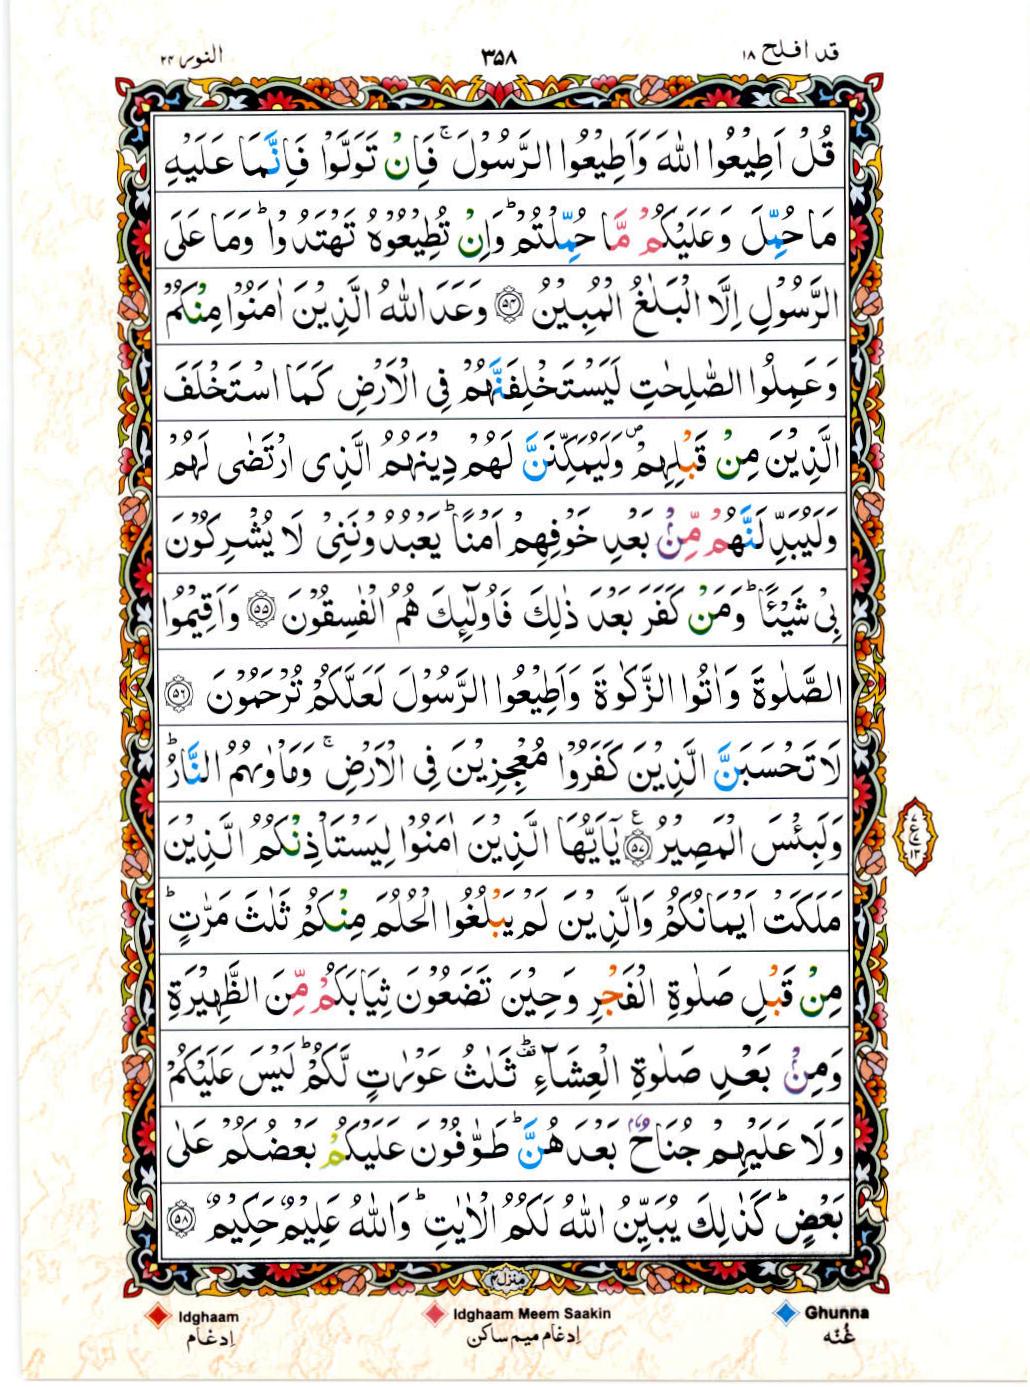 قد افلح ١٨
٣٥٨
النور ٢٤
قُلْ اَطِيْعُوا اللّٰهَ وَاَطِيْعُوا الرَّسُوْلَ ۚ فَاِنْ تَوَلَّوْا فَاِنَّمَا عَلَيْهِ
مَا حُمِّلَ وَعَلَيْكُمْ مَّا حُمِّلْتُمْ ؕ وَاِنْ تُطِيْعُوْهُ تَهْتَدُوْا ؕ وَمَا عَلَى
الرَّسُوْلِ اِلَّا الْبَلٰغُ الْمُبِيْنُ ﴿۵۴﴾ وَعَدَ اللّٰهُ الَّذِيْنَ اٰمَنُوْا مِنْكُمْ
وَعَمِلُوا الصّٰلِحٰتِ لَيَسْتَخْلِفَنَّهُمْ فِى الْاَرْضِ كَمَا اسْتَخْلَفَ
الَّذِيْنَ مِنْ قَبْلِهِمْ ۪ وَلَيُمَكِّنَنَّ لَهُمْ دِيْنَهُمُ الَّذِى ارْتَضٰى لَهُمْ
وَلَيُبَدِّلَنَّهُمْ مِّنْۢ بَعْدِ خَوْفِهِمْ اَمْنًا ؕ يَعْبُدُوْنَنِىْ لَا يُشْرِكُوْنَ
بِىْ شَيْئًا ؕ وَمَنْ كَفَرَ بَعْدَ ذٰلِكَ فَاُولٰٓئِكَ هُمُ الْفٰسِقُوْنَ ﴿۵۵﴾ وَاَقِيْمُوا
الصَّلٰوةَ وَاٰتُوا الزَّكٰوةَ وَاَطِيْعُوا الرَّسُوْلَ لَعَلَّكُمْ تُرْحَمُوْنَ ﴿۵۶﴾
لَا تَحْسَبَنَّ الَّذِيْنَ كَفَرُوْا مُعْجِزِيْنَ فِى الْاَرْضِ ۚ وَمَاْوٰىهُمُ النَّارُ ؕ
وَلَبِئْسَ الْمَصِيْرُ ﴿۵۷﴾ ع يٰۤاَيُّهَا الَّذِيْنَ اٰمَنُوْا لِيَسْتَاْذِنْكُمُ الَّذِيْنَ
مَلَكَتْ اَيْمَانُكُمْ وَالَّذِيْنَ لَمْ يَبْلُغُوا الْحُلُمَ مِنْكُمْ ثَلٰثَ مَرّٰتٍ ؕ
مِنْ قَبْلِ صَلٰوةِ الْفَجْرِ وَحِيْنَ تَضَعُوْنَ ثِيَابَكُمْ مِّنَ الظَّهِيْرَةِ
وَمِنْۢ بَعْدِ صَلٰوةِ الْعِشَآءِ ؕ۟ ثَلٰثُ عَوْرٰتٍ لَّكُمْ ؕ لَيْسَ عَلَيْكُمْ
وَلَا عَلَيْهِمْ جُنَاحٌۢ بَعْدَهُنَّ ؕ طَوّٰفُوْنَ عَلَيْكُمْ بَعْضُكُمْ عَلٰى
بَعْضٍ ؕ كَذٰلِكَ يُبَيِّنُ اللّٰهُ لَكُمُ الْاٰيٰتِ ؕ وَاللّٰهُ عَلِيْمٌ حَكِيْمٌ ﴿۵۸﴾
منزل ۴
Ghunna
غُنّه
Idghaam Meem Saakin
اِدغام میم ساکن
Idghaam
اِدغام